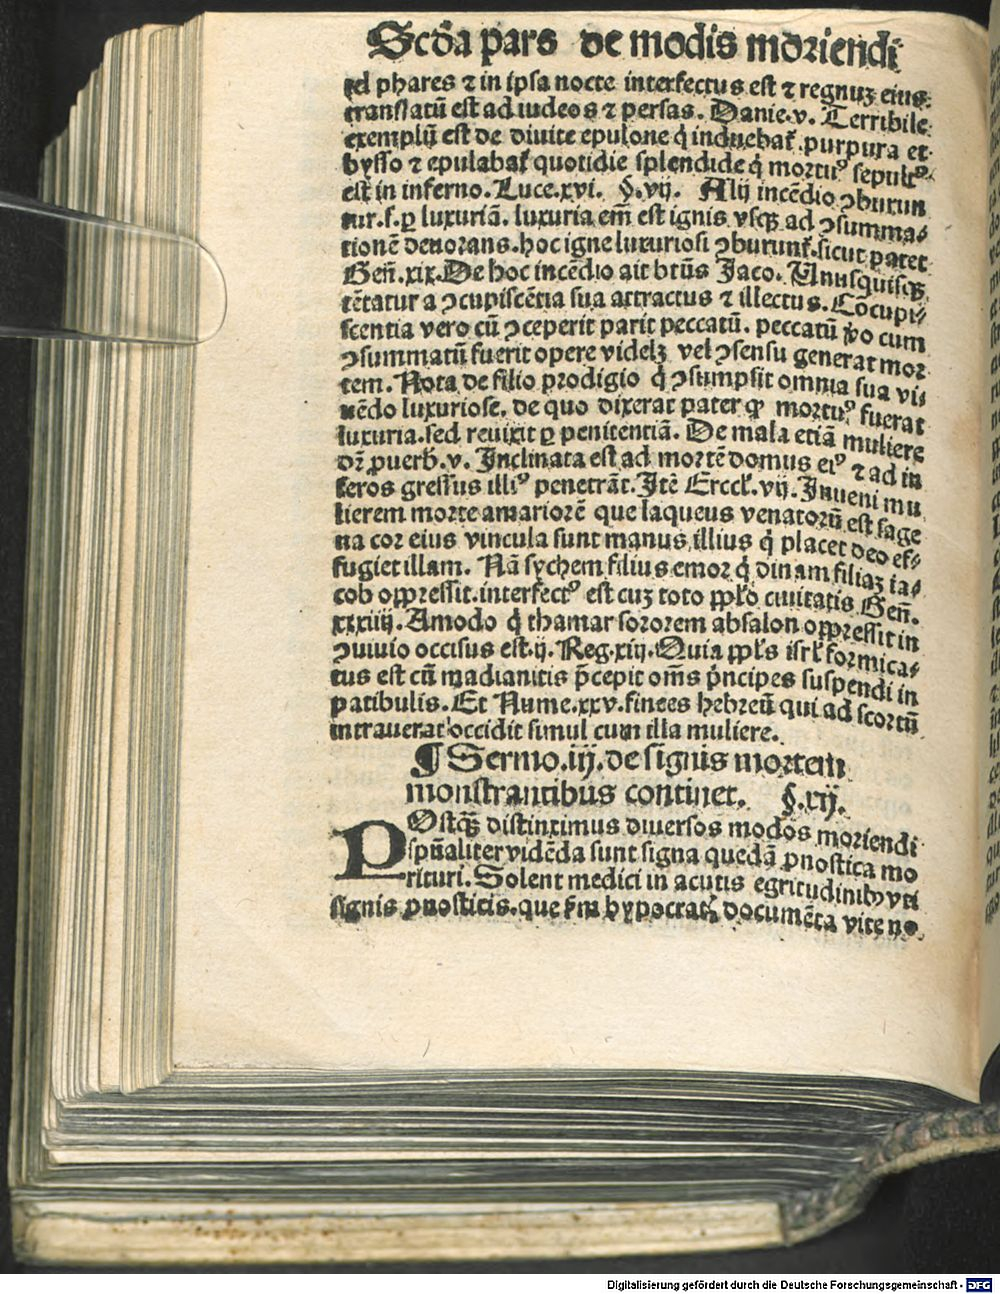 Scďa pars de modis moriendi
tel phares ⁊ in ipsa nocte interfectus est ⁊ regnuꝫ eius
translatū est ad iudeos ⁊ persas. Danie.v. Terribile
exemplū est de diuite epulone q̇ induebat᷑ purpura et
bysso ⁊ epulabat᷑ quotidie splendide q̇ mortuꝰ sepultꝰ
est in inferno. Luce.xvi. §.vij. Alij incēdio ↄburun
tur.s.ꝑ luxuriā. luxuria em̄ est ignis vsqꝫ ad ↄsumma⸗
tionē deuorans. hoc igne luxuriosi ↄburunt᷑. sicut patet
Geñ.xix. De hoc incēdio ait btūs Jaco. Vnusquisqꝫ
tētatur a ↄcupiscētia sua attractus ⁊ illectus. Cōcupi⸗
scentia vero cū ↄceperit parit peccatū. peccatū v̊o cum
ↄsummatū fuerit opere videlꝫ vel ↄsensu generat mor
tem. Nota de filio prodigio q̇ ↄsumpsit omnia sua vi⸗
uēdo luxuriose. de quo dixerat pater ꝙ mortuꝰ fuerat
luxuria. sed reuixit ꝑ penitentiā. De mala etiā muliere
dr̄ ꝓuerb̄.v. Inclinata est ad mortē domus eiꝰ ⁊ ad in
feros gressus illiꝰ penetrāt. Itē Eccl̄.vij. Inueni mu
lierem morte amariorē que laqueus venatorū est sage
na cor eius vincula sunt manus illius q̇ placet deo ef⸗
fugiet illam. Nā sychem filius emor q̇ dinam filiaꝫ ia⸗
cob oppressit. interfectꝰ est cuꝫ toto pp̄lo ciuitatis Geñ.
xxxiiij. Amodo q̇ thamar sororem absalon oppressit in
ↄuiuio occisus est.ij. Reg.xiij. Quia pp̄ls isrl̄ fornica⸗
tus est cū madianitis p̄cepit om̄s p̄ncipes suspendi in
patibulis. Et Nume.xxv. finees hebreū qui ad scortū
intrauerat occidit simul cum illa muliere.
¶ Sermo.iij. de signis mortem
monstrantibus continet. §.xij.
POstqꝫ distinximus diuersos modos moriendi
spūaliter vidēda sunt signa quedā ꝓnostica mo
rituri. Solent medici in acutis egritudinibꝰ vti
signis ꝓnosticis. que sm̄ hypocratꝭ documēta vite no
Digitalisierung gefördert durch die Deutsche Forschungsgemeinschaft - DFG